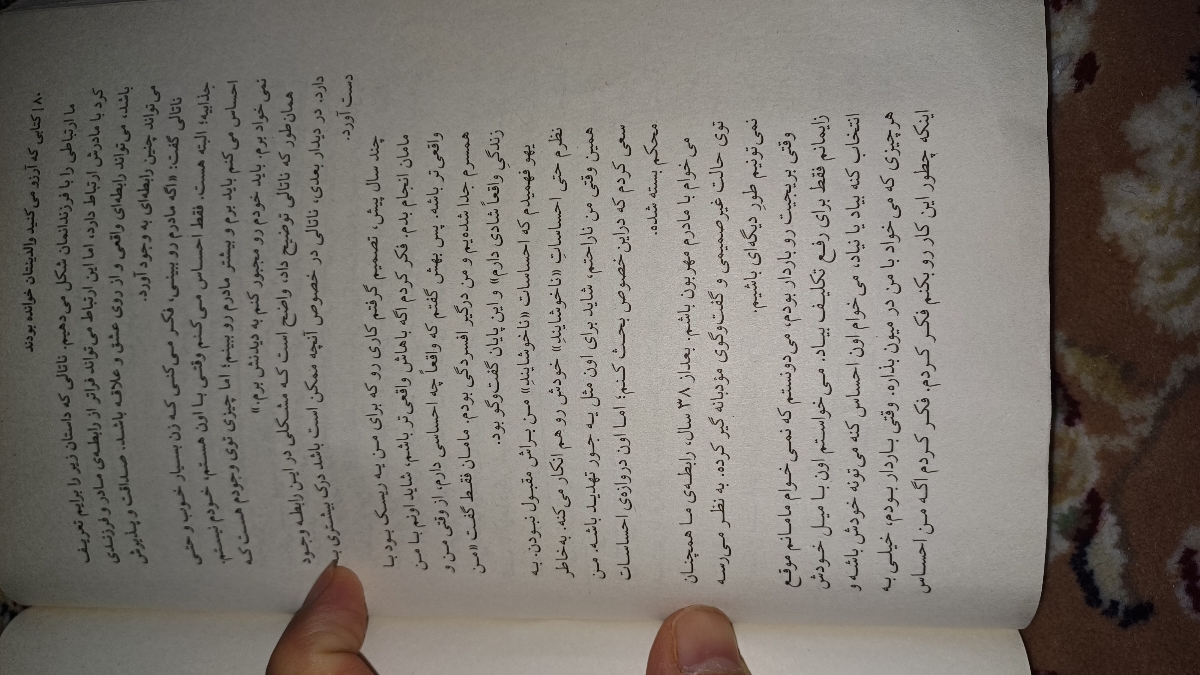 ۸۰ | کتابی که آرزو می‌کنید والدینتان خوانده بودند
ما ارتباطی را با فرزندانمان شکل می‌دهیم. ناتالی که داستان زیر را برایم تعریف
کرد با مادرش ارتباط دارد، اما این ارتباط می‌تواند فراتر از رابطه‌ی مادر و فرزندی
باشد، می‌تواند رابطه‌ای واقعی و از روی عشق و علاقه باشد. صداقت و پذیرش
می‌تواند چنین رابطه‌ای به وجود آورد.
ناتالی گفت: «اگه مادرم رو ببینی، فکر می‌کنی که زن بسیار خوب و حتی
جذابیه؛ البته هست. فقط احساس می‌کنم وقتی با اون هستم، خودم نیستم.
احساس می‌کنم باید برم و بیشتر مادرم رو ببینم؛ اما چیزی توی وجودم هست که
نمی‌خواد برم. باید خودم رو مجبور کنم به دیدنش برم.»
همان‌طور که ناتالی توضیح داد، واضح است که مشکلی در این رابطه وجود
دارد. در دیدار بعدی، ناتالی در خصوص آنچه ممکن است باشد درک بیشتری به
دست آورد.
چند سال پیش، تصمیم گرفتم کاری رو که برای من یه ریسک بود با
مامان انجام بدم. فکر کردم اگه باهاش واقعی‌تر باشم، شاید اونم با من
واقعی‌تر باشه. پس بهش گفتم که واقعاً چه احساسی دارم، از وقتی من و
همسرم جدا شده‌یم و من درگیر افسردگی بودم. مامان فقط گفت «من
زندگیِ واقعاً شادی دارم» و این پایان گفت‌وگو بود.
یهو فهمیدم که احساسات «ناخوشایندِ» من براش مقبول نبودن. به
نظرم حتی احساساتِ «ناخوشایندِ» خودش رو هم انکار می‌کنه. به‌خاطر
همین وقتی من ناراحتم، شاید برای اون مثل یه جور تهدید باشه. من
سعی کردم که دراین خصوص بحث کنم؛ اما اون دروازه‌ی احساسات
محکم بسته شده.
می‌خوام با مادرم مهربون باشم. بعد از ۳۸ سال، رابطه‌ی ما همچنان
توی حالت غیرصمیمی و گفت‌وگوی مؤدبانه گیر کرده. به نظر می‌رسه
نمی‌تونیم طورِ دیگه‌ای باشیم.
وقتی بریجیت رو باردار بودم، می‌دونستم که نمی‌خوام مامانم موقع
زایمانم فقط برای رفع تکلیف بیاد. می‌خواستم اون با میل خودش
انتخاب کنه بیاد یا نیاد، می‌خوام اون احساس کنه می‌تونه خودش باشه و
هر چیزی که می‌خواد با من در میون بذاره. وقتی باردار بودم، خیلی به
اینکه چطور این کار رو بکنم فکر کردم. فکر کردم اگه من احساس